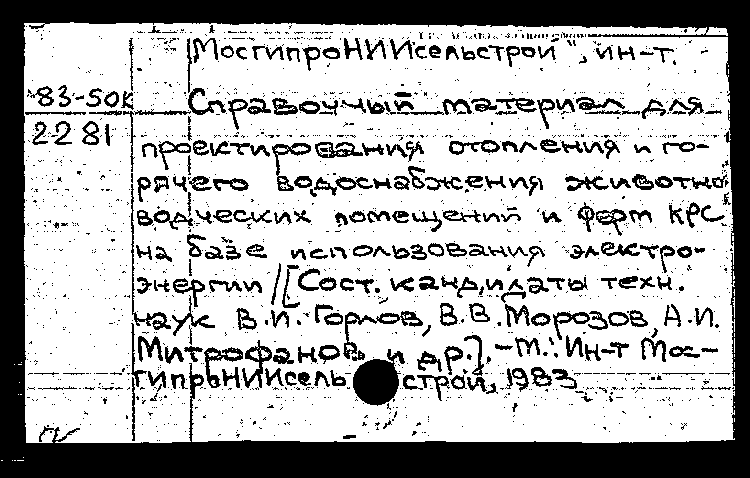 МосгипроНИИсельстрой", ин-т.
83-50к
2281
Справочный материал для
проектирования отопления и го-
рячего водоснабжения животно-
водческих помещений и ферм КРС
на базе использования электро-
энергии //[Сост. кандидаты техн.
наук В.И. Горлов, В.В. Морозов, А.И.
Митрофанов и др.]. - М.: Ин-т Мос-
гипроНИИсельстрой, 1983